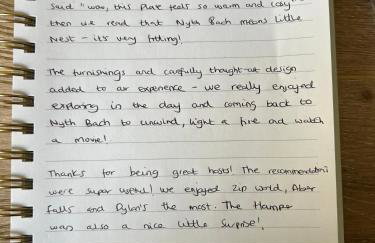 said "wow, this place feels so warm and cosy"
then we read that Nyth Bach means Little
Nest - it's very fitting!
The furnishings and carefully thought-out design
added to our experience - we really enjoyed
exploring in the day and coming back to
Nyth Bach to unwind, light a fire and watch
a movie!
Thanks for being great hosts! The recommendations
were super useful! we enjoyed Zip World, Aber
falls and Dylan's the most. The Hamper
was also a nice little surprise!